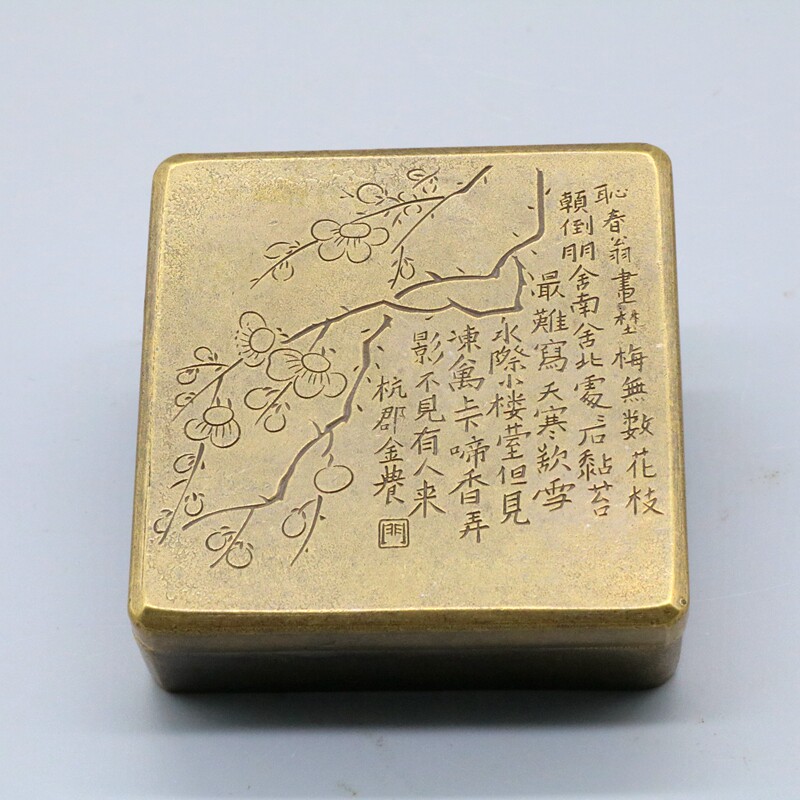 恥春翁畫埜梅無數花枝
顛倒開舍南舍北處〻石黏苔
最難寫天寒欲雪
水際小楼臺但見
凍禽上下啼香弄
影不見有人来
杭郡金農